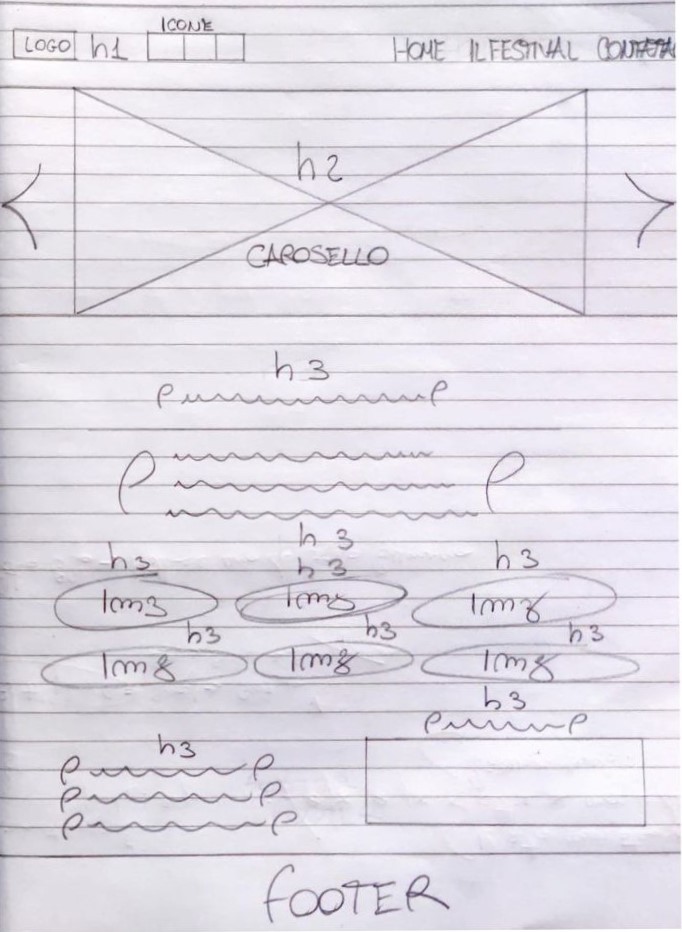 ICONE
LOGO h1 HOME IL FESTIVAL
h2
CAROSELLO
h3
p p
p p
h3
h3 h3 h3
Img Img Img
h3 h3 h3
Img Img Img
h3
p p
h3
p p
p p
p p
FOOTER